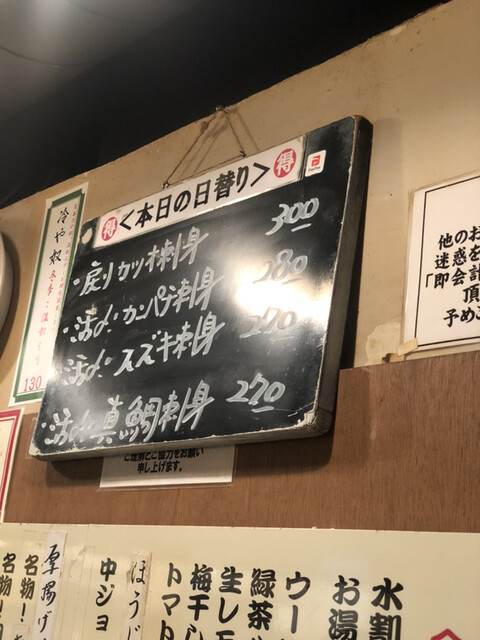 得 <本日の日替り> 得
PayPay
・戻りカツオ刺身 300
・活〆カンパチ刺身 280
・活〆スズキ刺身 270
・活〆真鯛刺身 270
冷や奴
130
他のお
迷惑を
「即会計
頂
予めご
ご理解とご協力をお願い
申し上げます。
水割
お湯
ウー
緑茶
生レモ
梅干し
トマト
ほうじ
中ジョ
厚揚げ
名物!
名物!